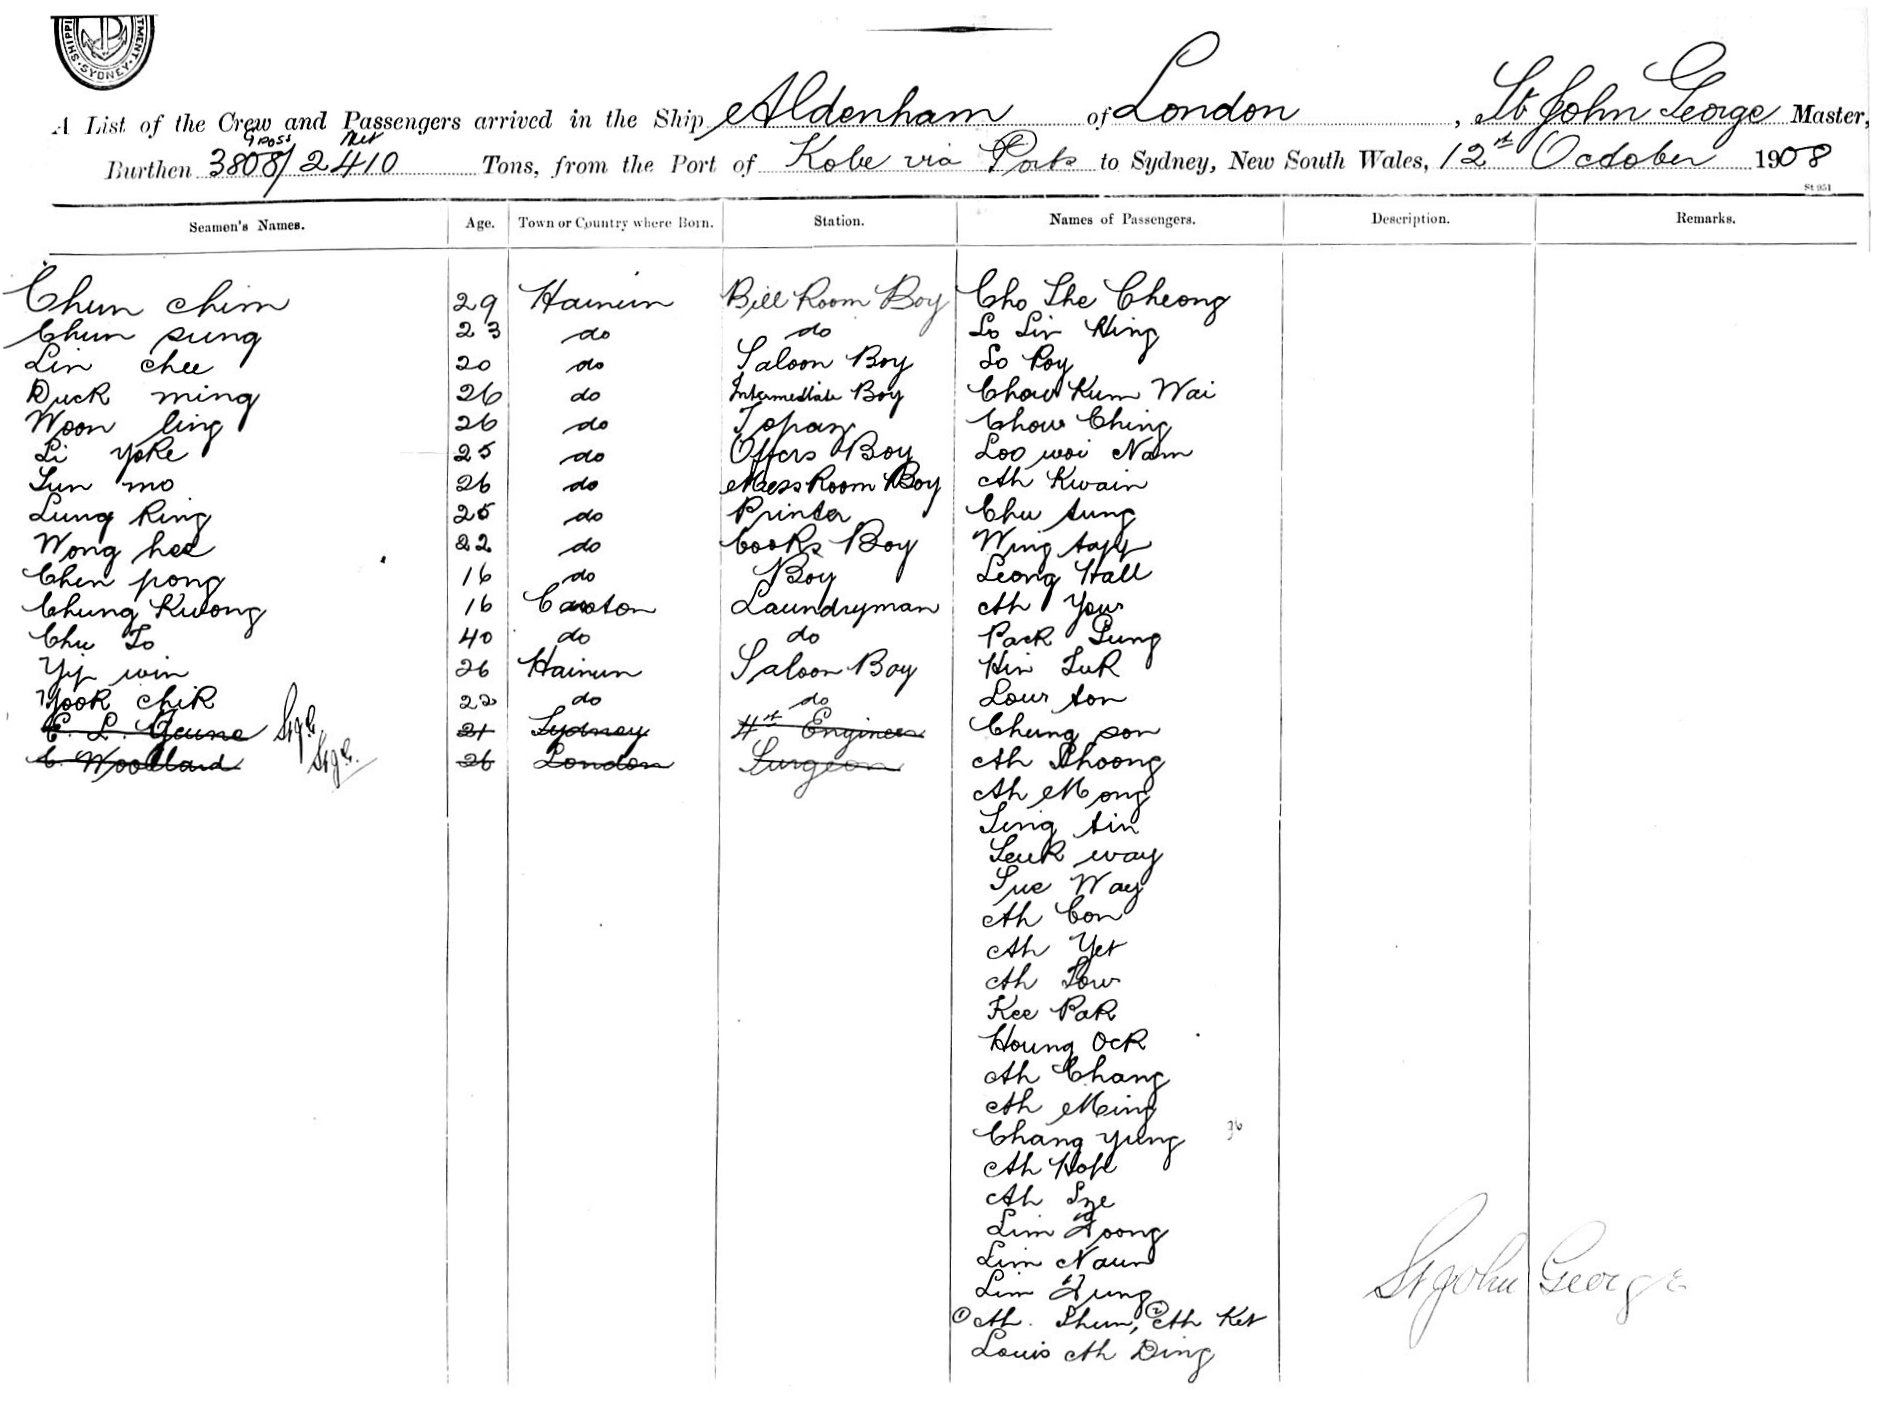 SHIPPI TMENT SYDNEY
A List of the Crew and Passengers arrived in the Ship Aldenham of London, St John George Master,
Gross Net
Burthen 3808/2410 Tons, from the Port of Kobe via Ports to Sydney, New South Wales, 12th October 1908
St 951
Seamen's Names. Age. Town or Country where Born. Station. Names of Passengers. Description. Remarks.
Chun chim 29 Hainun Bill Room Boy Cho She Cheong
Chun sung 23 do do Lo Lin Hing
Lin chee 20 do Saloon Boy So Poy
Duck ming 26 do Intermediate Boy Chow Kum Wai
Woon ling 26 do Topaz Chow Ching
Li yoke 25 do Offcrs Boy Loo woi Nam
Sun mo 26 do Mess Room Boy Ah Kwain
Lung King 25 do Printer Chu tung
Wong hee 22 do Cooks Boy Wing tapp
Chen pong 16 do Boy Leong Hall
Chung Kwong 16 Canton Laundryman Ah Your
Chu To 40 do do Pack Lung
Yip win 26 Hainun Saloon Boy Hin Luk
Yook chik 22 do do Lour ton
E. L. Geune StJG. 21 Sydney 4th Engineer Chung son
C. Woollard StJG. 26 London Surgeon Ah Phoong
Ah Mong
Sing tin
Seuk way
Sue Way
Ah Con
Ah Yet
Ah Low
Kee Pak
Houng Ock
Ah Chang
Ah Ming
Chang yung 36
Ah Hop
Ah Sze
Lim Foong
Lim Naun
Lim Fung
① Ah. Shum, ② Ah Ket
Louis Ah Ding
St John George